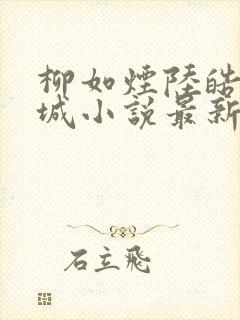 柳如煙陸皓
城小說最新
石立飛